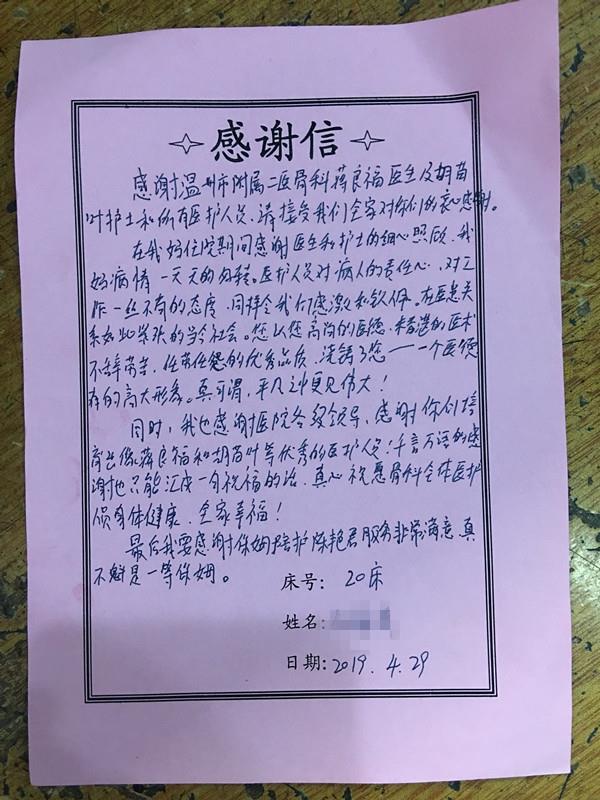 感谢信
感谢温州市附属二医骨科蒋良福医生及胡苗
叶护士和所有医护人员，请接受我们全家对你们的衷心感谢。
在我妈住院期间感谢医生和护士的细心照顾，我
妈病情一天天的好转。医护人员对病人的责任心，对工
作一丝不苟的态度，同样令我们感激和钦佩。在医患关
系如此紧张的当今社会。您以您高尚的医德，精湛的医术
不辞劳苦，任劳任怨的优秀品质，浇铸了您——一个医德
的高大形象。真可谓，平凡之中更见伟大！
同时，我也感谢医院各级领导，感谢你们培
育出像蒋良福和胡苗叶等优秀的医护人员！千言万语的感
谢也只能汇成一句祝福的话，真心祝愿骨科全体医护
人员身体健康，全家幸福！
最后我要感谢保姆陪护陈艳君服务非常满意，真
不愧是一等保姆。
床号：20床
姓名：
日期：2019.4.29